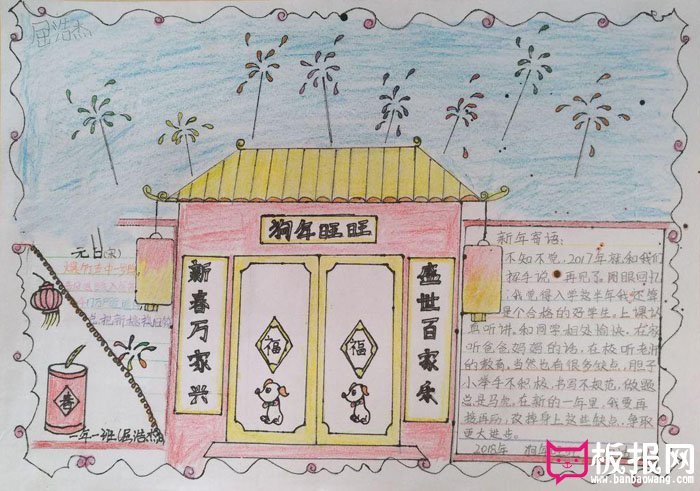 屈浩杰
狗年旺旺
新春万家兴
盛世百家乐
福
福
元日(宋)
爆竹声中一岁除
春
一年一班(屈浩杰)
新年寄语:
不知不觉,2017年在和我们
挥手说"再见了。闭眼回忆
我觉得入学这半年我还算
是个合格的好学生。上课认
真听讲,和同学相处愉快。在家
听爸爸妈妈的话,在校听老师
的教育,当然也有很多缺点,胆子
小举手不积极、书写不规范,做题
总是马虎。在新的一年里,我要再
接再励,改掉身上这些缺点,争取
更大进步。
2018年 狗年
板报网
www.banbaowang.com